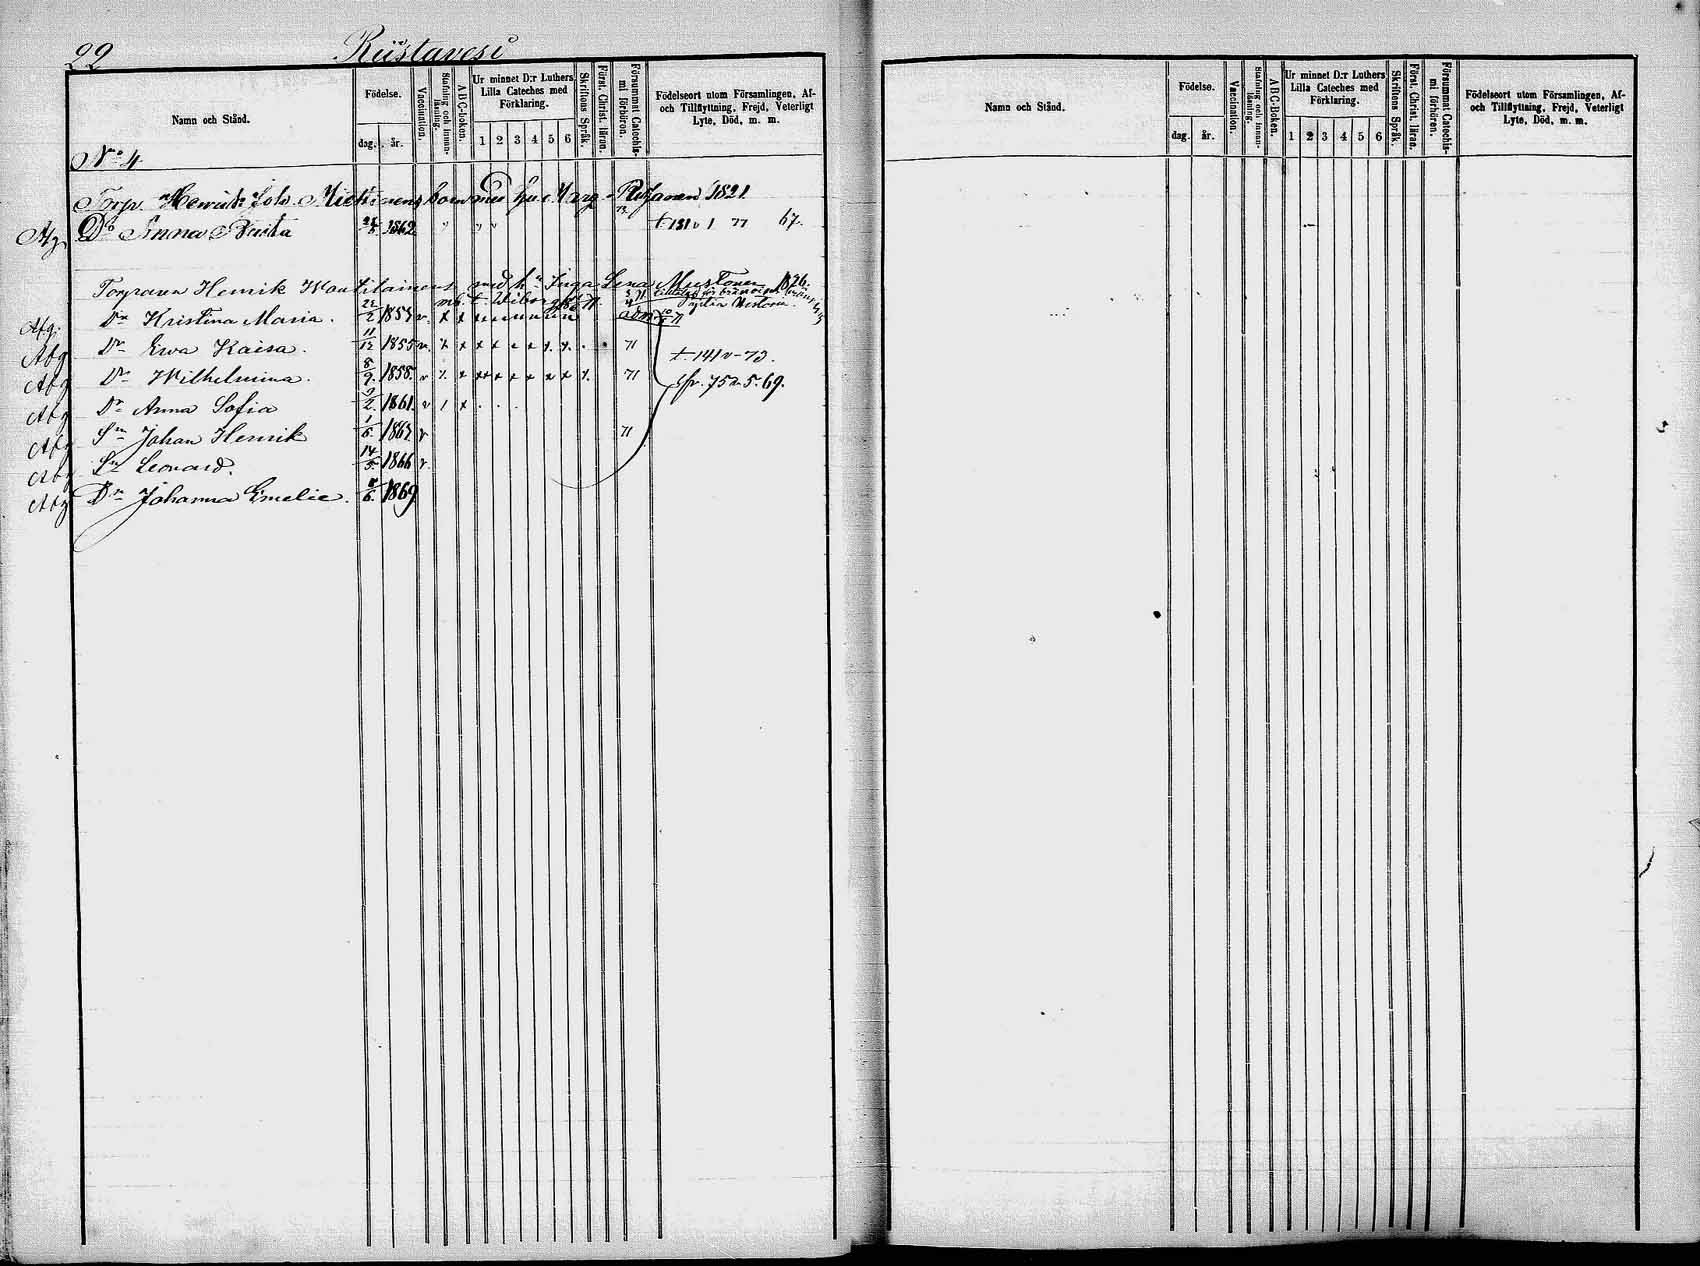 22 Riistavesi
Namn och Stånd.
Födelse.
dag. år.
Vaccination.
Stafning och innan-läsning.
ABC-Boken.
Ur minnet D:r Luthers
Lilla Cateches med
Förklaring.
1 2 3 4 5 6
Skriftens Språk.
Först. Christ. läron.
Försummat Catechis-
mi förhören.
Födelseort utom Församlingen, Af-
och Tillflyttning, Frejd, Veterligt
Lyte, Död, m. m.
No 4
Torp. Henrik Joh. barn med hu Marg. 1821
Do Anna 1862 " " " t 131 v 1 77 67.
Torparen Henrik med hu Inga Lena Mustonen 1826.
Afg. Dr Kristina Maria. 22/2 1853 v x x
Afg Dr Ewa Kaisa. 11/12 1855 v. x x x x x x x x . 71 t. 141 v - 73.
Afg Dr Wilhelmina. 8/9 1858. v x x x x x x x x x 71 fr. 752. 5. 69.
Afg Dr Anna Sofia 9/2 1861. v 1 x . . .
Afg Sn Johan Henrik 1/6 1863 v 71
Afg Sn Leonard. 14/5 1866 v.
Afg Dr Johanna Emelie. 8/6 1869
Namn och Stånd.
Födelse.
dag. år.
Vaccination.
Stafning och innan-läsning.
ABC-Boken.
Ur minnet D:r Luthers
Lilla Cateches med
Förklaring.
1 2 3 4 5 6
Skriftens Språk.
Först. Christ. läron.
Försummat Catechis-
mi förhören.
Födelseort utom Församlingen, Af-
och Tillflyttning, Frejd, Veterligt
Lyte, Död, m. m.